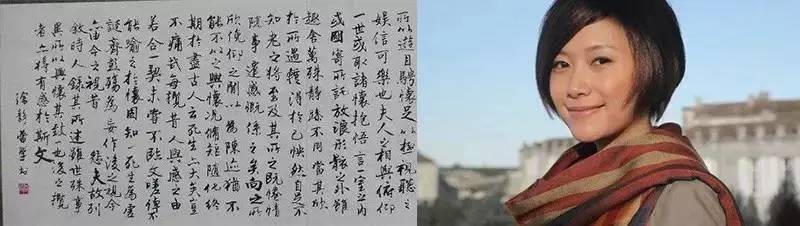 所以遊目騁懷足以極視聽之
娛信可樂也夫人之相與俯仰
一世或取諸懷抱悟言一室之內
或因寄所託放浪形骸之外雖
趣舍萬殊靜躁不同當其欣
於所遇暫得於己怏然自足不
知老之將至及其所之既惓情
隨事遷感慨係之矣向之所
欣俛仰之閒以為陳迹猶不
能不以之興懷況脩短隨化終
期於盡古人云死生亦大矣豈
不痛哉每攬昔人興感之由
若合一契未嘗不臨文嗟悼不
能喻之於懷固知一死生為虛
誕齊彭殤為妄作後之視今
亦由今之視昔悲夫故列
敘時人錄其所述雖世殊事
異所以興懷其致一也後之攬
者亦將有感於斯文
徐靜蕾學書